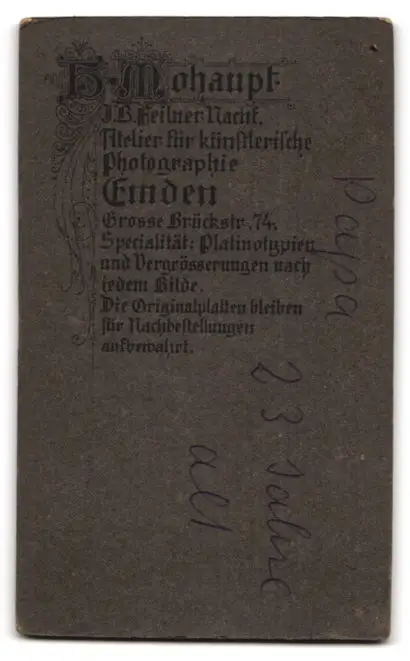 H. Mohaupt
J.B. Feilner Nachf.
Atelier für künstlerische
Photographie
Emden
Grosse Brückstr. 74.
Specialität: Platinotypien
und Vergrösserungen nach
jedem Bilde.
Die Originalplatten bleiben
für Nachbestellungen
aufbewahrt.
Papa
23 Jahre
alt